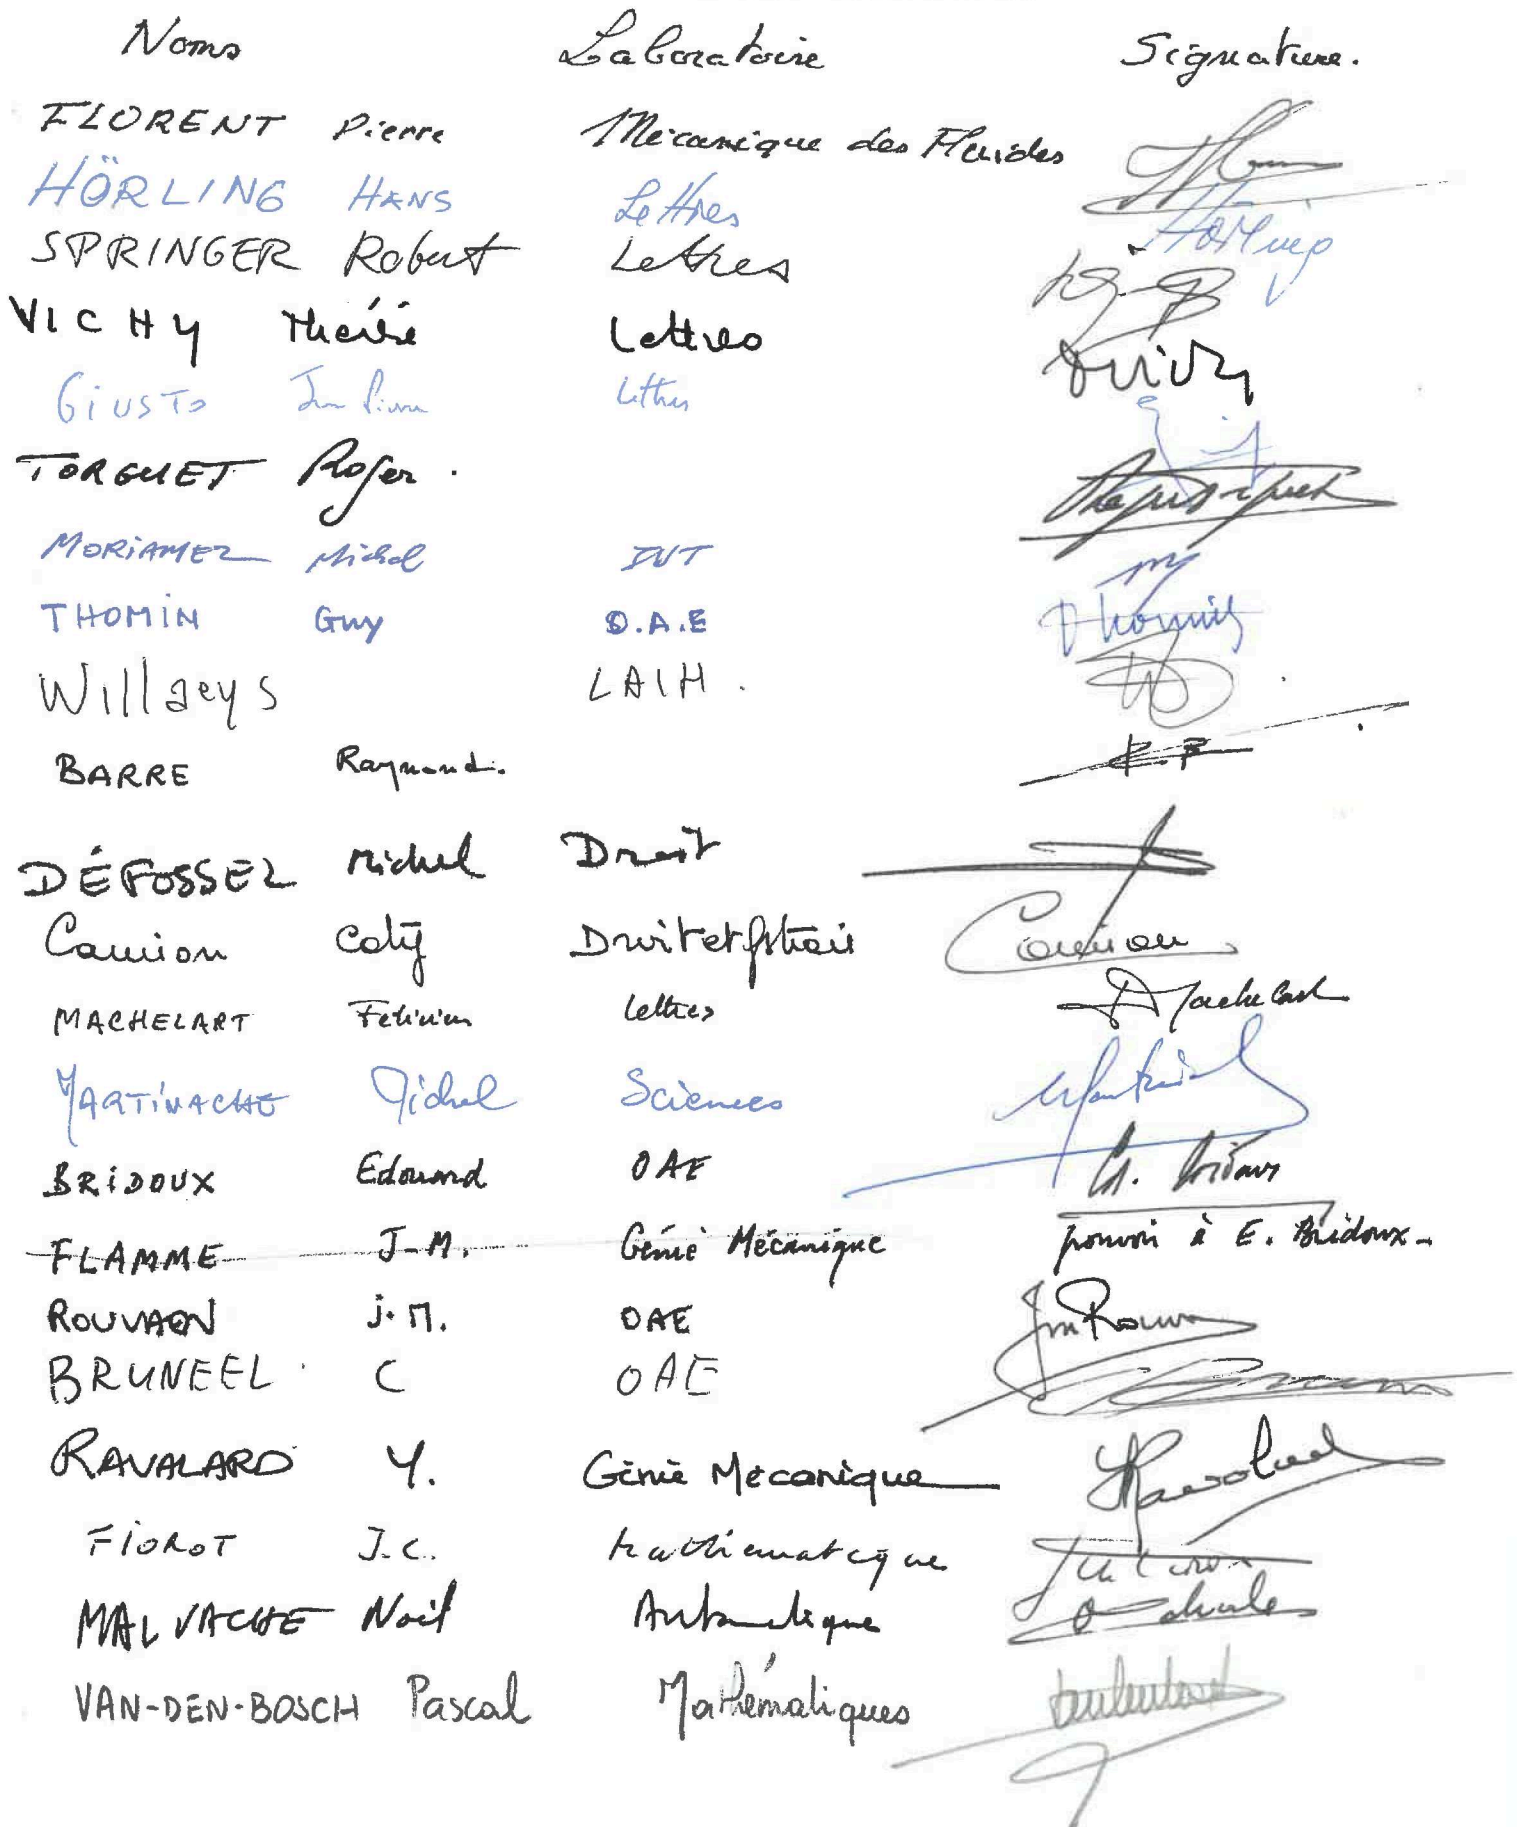 Noms Laboratoire Signature.
FLORENT Pierre Mécanique des Fluides
HÖRLING HANS Lettres Hörling
SPRINGER Robert Lettres
VICHY Lettres
GIUSTO Jean Pierre Lettres
TORGUET Roger.
MORIAMEZ Michel IUT
THOMIN Guy O.A.E Thomin
Willaeys LAIH.
BARRE Raymond. R.B
DÉFOSSEZ Michel Droit
Camion Camion
MACHELART Felicien Lettres Machelart
MARTINACHE Michel Sciences
BRIDOUX Edouard OAE
FLAMME J-M. Génie Mécanique pouvoir à E. Bridoux-
ROUVAEN J.M. OAE
BRUNEEL C OAE
RAVALARD Y. Génie Mécanique Ravalard
FIOROT J.C. Mathématique
MALVACHE Noël Automatique
VAN-DEN-BOSCH Pascal Mathématiques